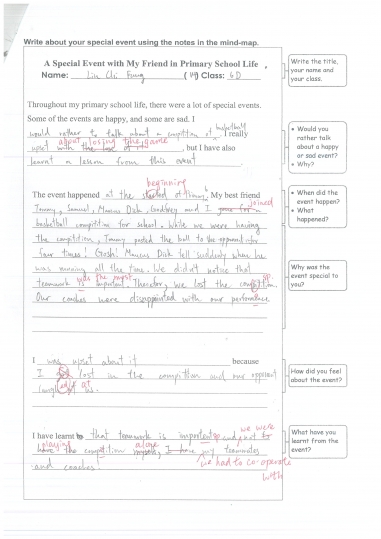 Write about your special event using the notes in the mind-map.
A Special Event with My Friend in Primary School Life
Name: Lin Chi Fung (14) Class: 6D
Throughout my primary school life, there were a lot of special events.
Some of the events are happy, and some are sad. I
basketball
would rather to talk about a competition of . I really
about losing the game
upset with the , but I have also
learnt a lesson from this event
beginning
The event happened at the of . My best friend
joined
Tommy, Samuel, Marcus Dick, Godfrey and I a
basketball competition for school. While we were having
the competition, Tommy passed the ball to the opponent for
four times! Gosh! Marcus Dick fell suddenly when he
was running all the time. We didn't notice that
was the most
teamwork is important. Therefore, we lost the competition.
Our coaches were disappointed with our performance
I was upset about it because
I lost in the competition and our opponent
laughed at us.
I have learnt that teamwork is important and
we were
playing
alone
have the competition myself, I have my teammates
we had to co-operate
and coaches!
with
Write the title, your name and your class.
• Would you rather talk about a happy or sad event?
• Why?
• When did the event happen?
• What happened?
Why was the event special to you?
How did you feel about the event?
What have you learnt from the event?